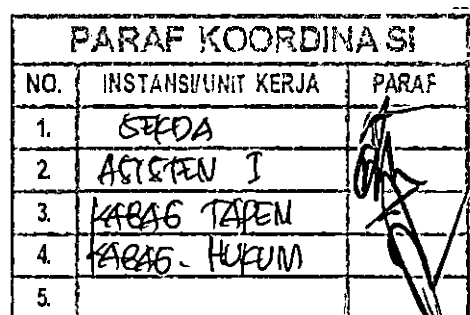 PARAF KOORDINASI
NO. INSTANSI/UNIT KERJA PARAF
1. SEKDA
2 ASISTEN I
3. KABAG TAPEM
4. KABAG. HUKUM
5.